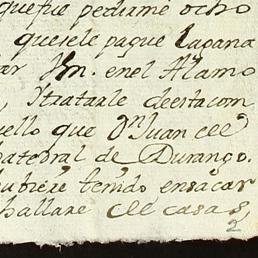 quefue pedirme ocho
querele pague Lagana
ar Jn. enel Alamo
, Ytratarle deestacom
ello que Dn Juan cel
atedral de Durango.
ubiere tenido ensacar
hallare cel casas,
2